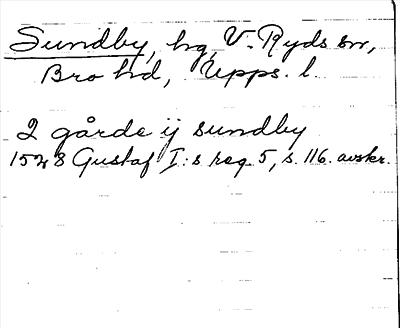 Sundby, hg, V. Ryds sn,
Bro hd, Upps. l.
2 gårde ij sundby
1528 Gustaf I:s reg 5, s. 116. avskr.